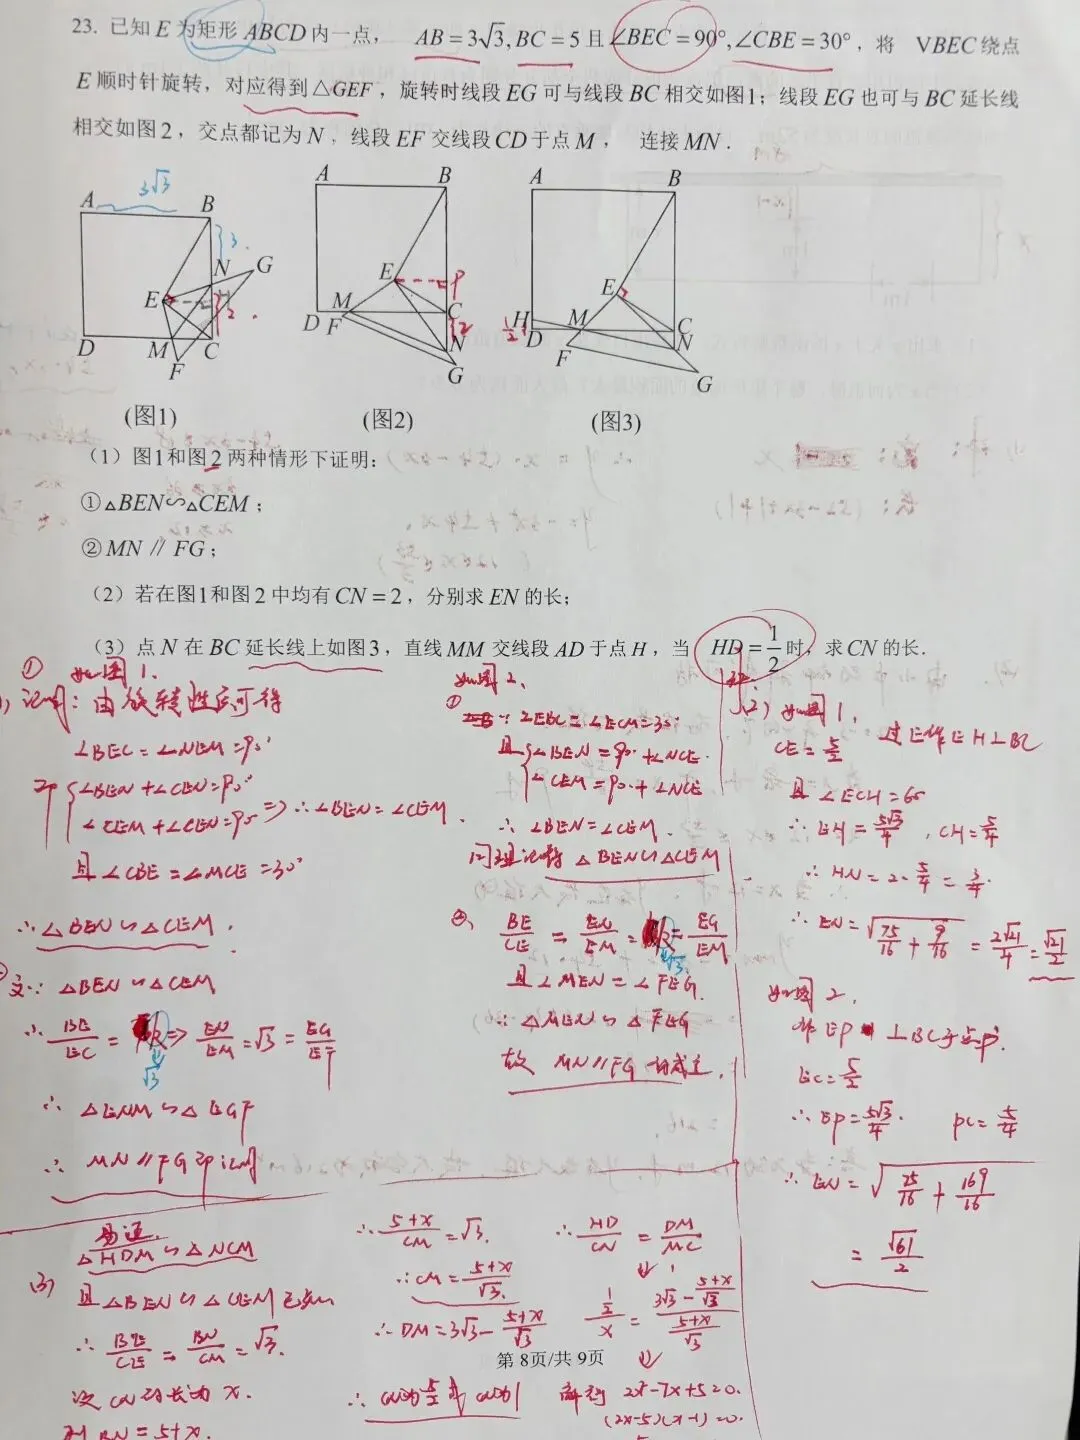 23. 已知 E 为矩形 ABCD 内一点， AB=3√3, BC=5 且∠BEC=90°, ∠CBE=30°，将 VBEC 绕点
E 顺时针旋转，对应得到△GEF，旋转时线段 EG 可与线段 BC 相交如图1；线段 EG 也可与 BC 延长线
相交如图2，交点都记为 N，线段 EF 交线段 CD 于点 M， 连接 MN．
A 3√3 B 3 N G E H 2 D M C F
A B E P M C D F 2 N G
A B E H M C 1/2 D F N G
(图1) (图2) (图3)
（1）图1和图2两种情形下证明：
①△BEN∽△CEM；
②MN∥FG；
（2）若在图1和图2中均有 CN=2，分别求 EN 的长；
（3）点 N 在 BC 延长线上如图3，直线 MM 交线段 AD 于点 H，当 HD=1/2 时，求 CN 的长．
① 如图1.
证明：由旋转性质可得
∠BEC=∠NEM=90°
即{∠BEN+∠CEN=90°
∠CEM+∠CEN=90° ⇒∴∠BEN=∠CEM
且∠CBE=∠MCE=30°
∴△BEN∽△CEM.
又∵△BEN∽△CEM
∴BE/EC=√3⇒EN/EM=√3=EG/EF
∴△ENM∽△EGF
∴MN∥FG 即证明
如图2.
①
∵∠EBC=∠ECM=30°
且{∠BEN=90°+∠NCE
∠CEM=90°+∠NCE
∴∠BEN=∠CEM.
同理证得△BEN∽△CEM
②, BE/CE=EN/EM=√3=EG/EM
且∠MEN=∠FEG.
∴△MEN∽△FEG
故 MN∥FG 均成立.
(2) 如图1, 过E作EH⊥BC
CE=5/2
且∠ECH=60
∴EH=5√3/4, CH=5/4
∴HN=2-5/4=3/4.
∴EN=√(75/16+9/16)=2√21/4=√21/2
如图2,
作EP⊥BC于点P.
EC=5/2
∴EP=5√3/4. PC=5/4
∴EN=√(75/16+169/16)
=√61/2
(3)
易证
△HDM∽△NCM
且△BEN∽△CEM 已知
∴BE/CE=BN/CM=√3.
设CN的长为x.
则BN=5+x.
∴(5+x)/CM=√3.
∴CM=(5+x)/√3.
∴DM=3√3-(5+x)/√3
∴CN为5/2或CN为1
∴HD/CN=DM/MC
⇓
(1/2)/x=(3√3-(5+x)/√3)/((5+x)/√3)
⇓
解得 2x²-7x+5=0.
(2x-5)(x-1)=0.
第 8页/共 9页